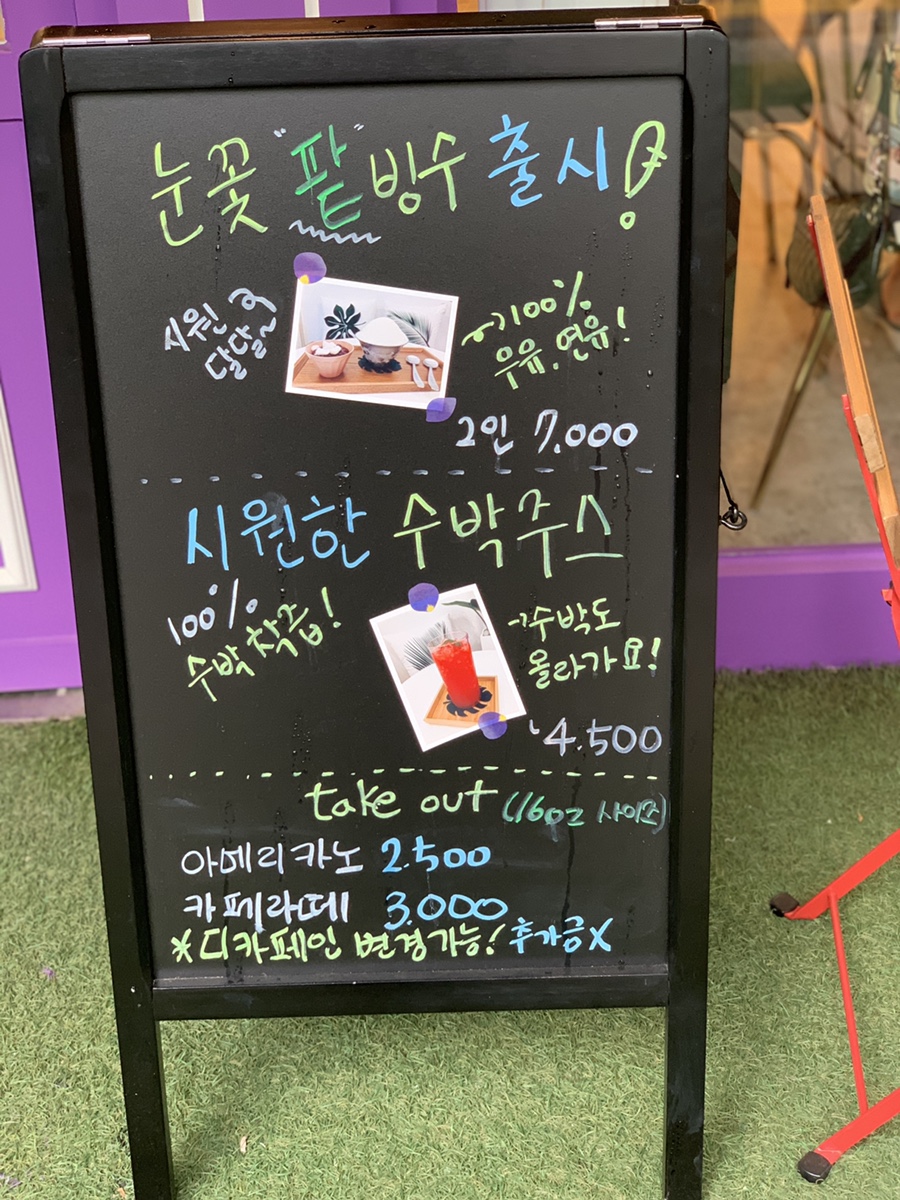 눈꽃 "팥" 빙수 출시!
시원
달달~
100%
우유, 연유!
2인 7.000
시원한 수박주스
100%
수박 착즙!
수박도
올라가요!
4.500
take out (16oz 사이즈)
아메리카노 2.500
카페라떼 3.000
*디카페인 변경가능! 추가금X